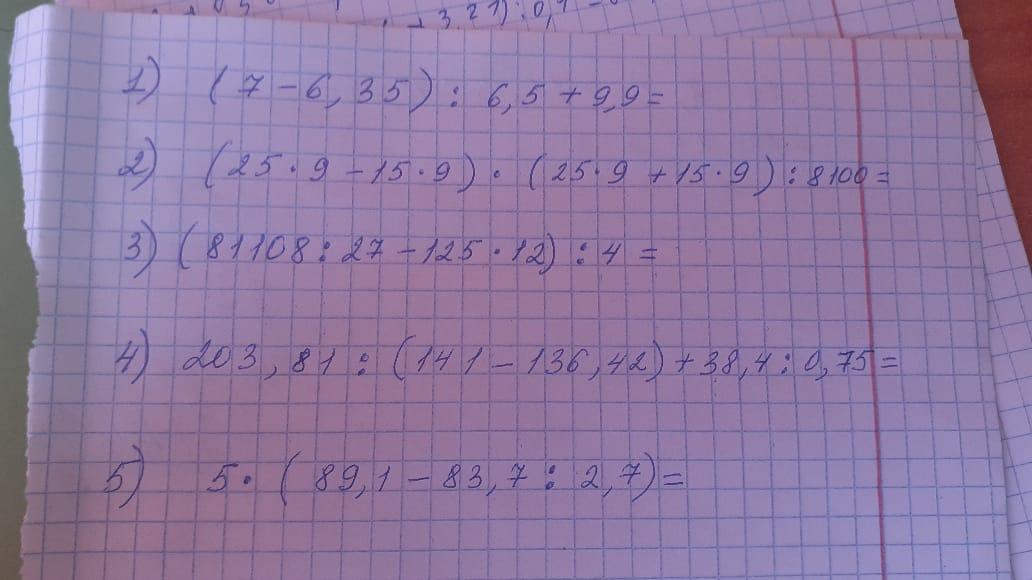 3,21) : 0,1
1) (7 - 6,35) : 6,5 + 9,9 =
2) (25 · 9 - 15 · 9) · (25 · 9 + 15 · 9) : 8100 =
3) (81108 : 27 - 125 · 12) : 4 =
4) 203,81 : (141 - 136,42) + 38,4 : 0,75 =
5) 5 · (89,1 - 83,7 : 2,7) =